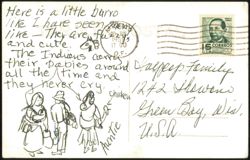 Here is a little burro
like I have seen
like — They are fat
and cute.
The Indians carry
their babies around
all the time and
they never cry.
Auntie
Family
1242 Stevens
Green Bay, Wis.
U.S.A